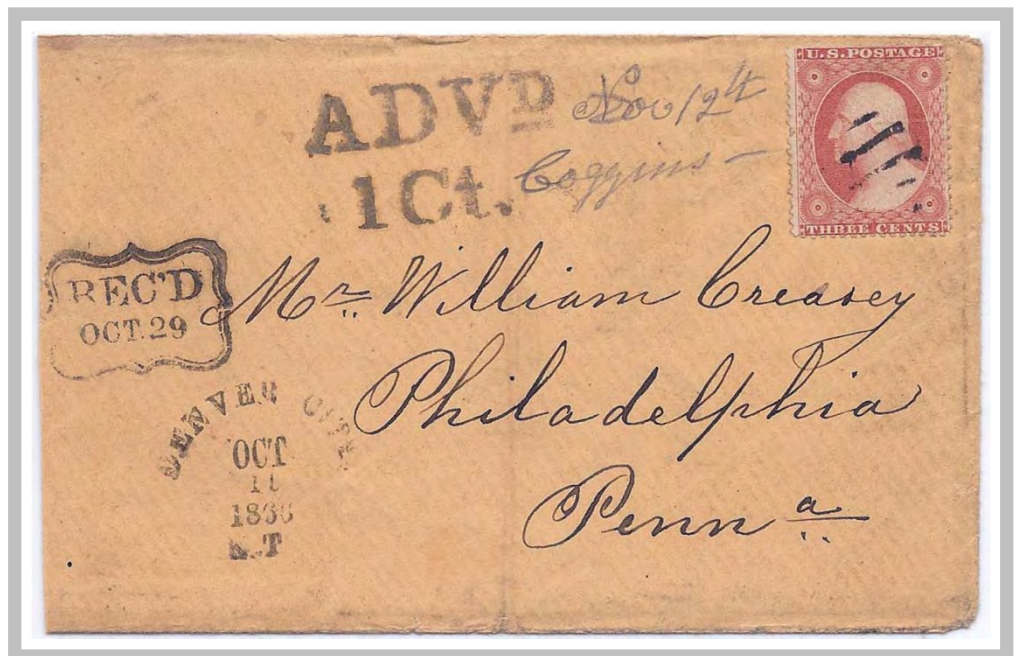 ADVD Nov 12th
1 Ct. Coggins –
U.S. POSTAGE
THREE CENTS
REC'D
OCT. 29
Mr. William Creasey
Philadelphia
Penna
DENVER CITY
OCT
11
1860
K.T